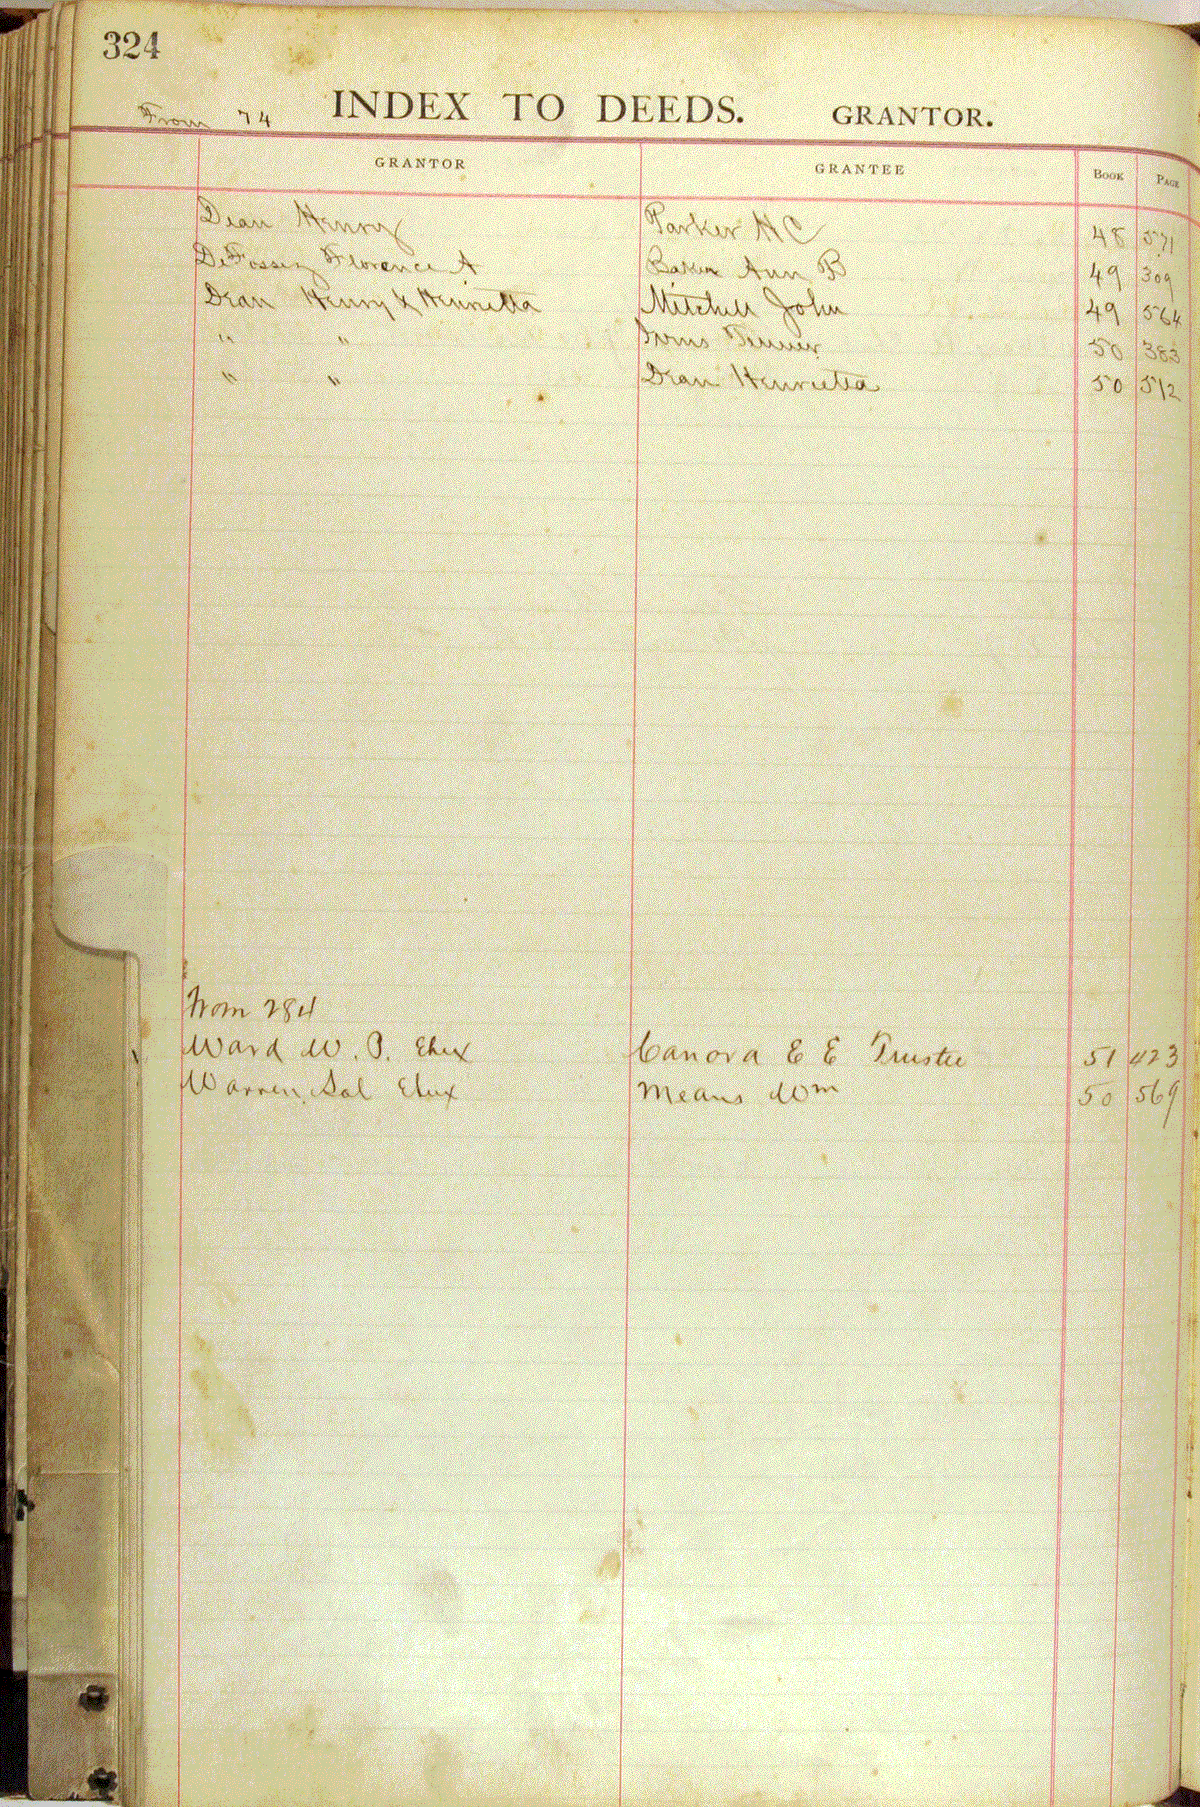 324
From 74 INDEX TO DEEDS. GRANTOR.
GRANTOR GRANTEE BOOK PAGE
Dean Henry Parker H C 48 571
DeFossez Florence A Baker Ann B 49 309
Dean Henry & Henrietta Mitchell John 49 564
" " 50 383
" " Dean Henrietta 50 512
From 284
Ward W. P. Etux Canova E E Trustee 51 423
Warren Sol Etux Means Wm 50 569